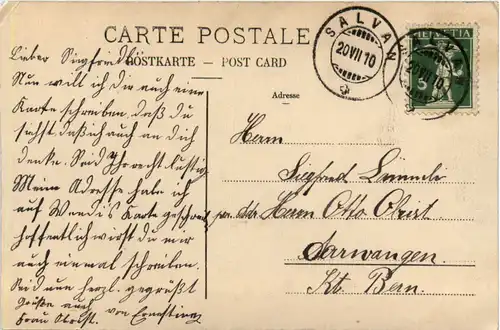 CARTE POSTALE
POSTKARTE — POST CARD
Adresse
SALVAN
20VII10
HELVETIA
5
Lieber Siegfriedli
Nun will ich dir auch eine
Karte schreiben, daß du
siehst daß ich auch an dich
denke. Seid Ihr recht lustig
Meine Adresse habe ich
auf Karte geschrieb
hoffentlich wirst du mir
auch einmal schreiben.
Seid nun herzl. gegrüßt
Grüße auch von Ernst
Frau Obrist.
Herrn
Siegfried Lümmle
per adr. Herrn Otto Obrist
Aarwangen.
Kt. Bern.